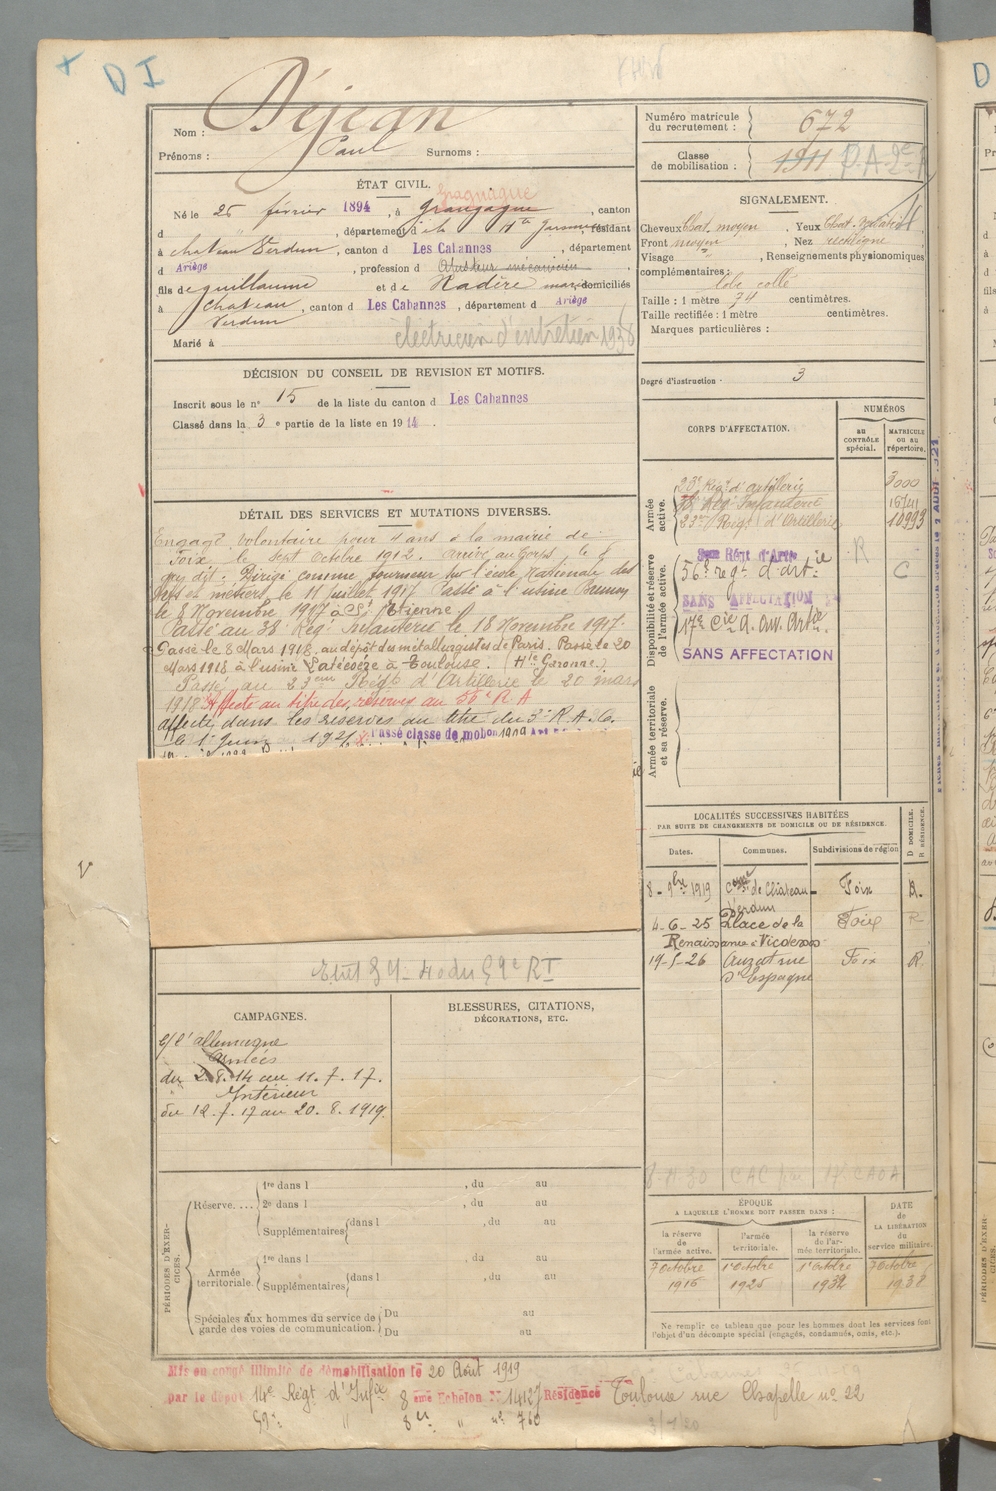 D I
Nom : Déjean
Prénoms : Paul Surnoms :
Numéro matricule
du recrutement : 672
Classe
de mobilisation : 1911
ÉTAT CIVIL.
Gragnague
Né le 25 février 1894, à Grangague, canton
d , département d Hte Garonne résidant
à chateau Verdun, canton d Les Cabannes, département
d Ariège, profession d mécanicien
fils de guillaume et de domiciliés
à chateau Verdun, canton d Les Cabannes, départment d Ariège
Marié à
électricien d'entretien 1938
SIGNALEMENT.
Cheveux Chat. moyen, Yeux Chat.
Front moyen, Nez rectiligne
Visage " , Renseignements physionomiques
complémentaires :
lobe collé
Taille : 1 mètre 74 centimètres.
Taille rectifiée : 1 mètre centimètres.
Marques particulières :
Degré d'instruction : 3
DÉCISION DU CONSEIL DE REVISION ET MOTIFS.
Inscrit sous le n° 15 de la liste du canton d Les Cabannes
Classé dans la 3 e partie de la liste en 1914.
CORPS D'AFFECTATION.
NUMÉROS
au
CONTRÔLE
spécial.
MATRICULE
ou au
répertoire.
Armée
active.
23e Régt d'artillerie 3000
38e Régt Infanterie
23me Régt d'Artillerie 10993
Disponibilité et réserve
de l'armée active.
Régt d'Arti
56e regt d'artie R C
SANS AFFECTATION
17e Cie d. ouv. Artie.
SANS AFFECTATION
Armée territoriale
et sa réserve.
DÉTAIL DES SERVICES ET MUTATIONS DIVERSES.
Engagé Volontaire pour 4 ans à la mairie de
Foix, le sept Octobre 1912. Arrivé au Corps, le
dit. Dirigé comme tourneur sur l'école Nationale des
arts et métiers, le 11 juillet 1917 Passé à l'usine
le 8 Novembre 1917 à St Etienne.
Passé au 38e Régt Infanterie le 18 Novembre 1917.
Passé le 8 Mars 1918, au dépôt des métallurgistes de Paris. Passé le 20
Mars 1918 à l'usine Latécoère à Toulouse. (Hte Garonne.)
Passé au 23eme Régt d'Artillerie le 20 mars
1918. Affecté au titre des réserves au 56e R.A
affecté dans les réserves au titre du 3e R.A.C.
le 1er Juin 1921 Passé classe de mobon 1909
LOCALITÉS SUCCESSIVES HABITÉES
PAR SUITE DE CHANGEMENTS DE DOMICILE OU DE RÉSIDENCE.
D DOMICILE.
R RÉSIDENCE.
Dates. Communes. Subdivisions de région
8-9bre 1919 Cne de Château-Verdun Foix R.
4-6-25 Place de la Renaissance à Vicdessos Foix R
19-5-26 Auzat rue d'Espagne Foix R
CAMPAGNES.
c/ l'allemagne
Armées
du 2.8.14 au 11.7.17.
Intérieur
du 12.7.17 au 20.8.1919.
BLESSURES, CITATIONS,
DÉCORATIONS, ETC.
PÉRIODES D'EXERCICES.
Réserve....
1re dans l , du au
2e dans l , du au
Supplémentaires dans l , du au
Armée
territoriale.
1re dans l , du au
Supplémentaires dans l , du au
Spéciales aux hommes du service de
garde des voies de communication.
Du au
Du au
ÉPOQUE
A LAQUELLE L'HOMME DOIT PASSER DANS :
DATE
de
LA LIBÉRATION
du
service militaire.
la réserve
de
l'armée active.
l'armée
territoriale.
la réserve
de l'armée territoriale.
7 Octobre 1915
1er Octobre 1925
1er Octobre 1932
7 Octobre 1938
Ne remplir ce tableau que pour les hommes dont les services font
l'objet d'un décompte spécial (engagés, condamnés, omis, etc.).
Mis en congé illimité de démobilisation le 20 Août 1919
par le dépôt 14e Régt d'Infie 8 ème Echelon N° 14127 Résidence Toulouse rue Chapelle no 22
" 8 " no 760